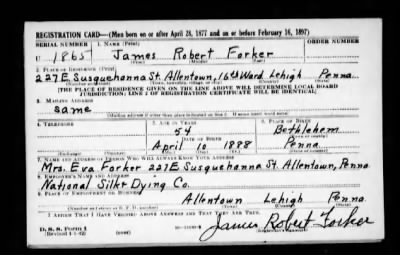 REGISTRATION CARD—(Men born on or after April 28, 1877 and on or before February 16, 1897)
SERIAL NUMBER 1. NAME (Print) ORDER NUMBER
U 1865 James Robert Forker
(First) (Middle) (Last)
2. PLACE OF RESIDENCE (Print)
227 E Susquehanna St. Allentown, 16th Ward Lehigh Penna.
(Number and street) (Town, township, village, or city) (County) (State)
[THE PLACE OF RESIDENCE GIVEN ON THE LINE ABOVE WILL DETERMINE LOCAL BOARD
JURISDICTION; LINE 2 OF REGISTRATION CERTIFICATE WILL BE IDENTICAL]
3. MAILING ADDRESS
same
[Mailing address if other than place indicated on line 2. If same insert word same]
4. TELEPHONE 5. AGE IN YEARS 6. PLACE OF BIRTH
54 Bethlehem
DATE OF BIRTH (Town or county)
April 10 1888 Penna.
(Mo.) (Day) (Yr.) (State or country)
7. NAME AND ADDRESS OF PERSON WHO WILL ALWAYS KNOW YOUR ADDRESS
Mrs. Eva Forker 227 E Susquehanna St. Allentown, Penna
8. EMPLOYER'S NAME AND ADDRESS
National Silk Dying Co.
9. PLACE OF EMPLOYMENT OR BUSINESS
Allentown Lehigh Penna.
(Number and street or R. F. D. number) (Town) (County) (State)
I AFFIRM THAT I HAVE VERIFIED ABOVE ANSWERS AND THAT THEY ARE TRUE.
D. S. S. Form 1
(Revised 4-1-42) (over) James Robert Forker
(Registrant's signature)